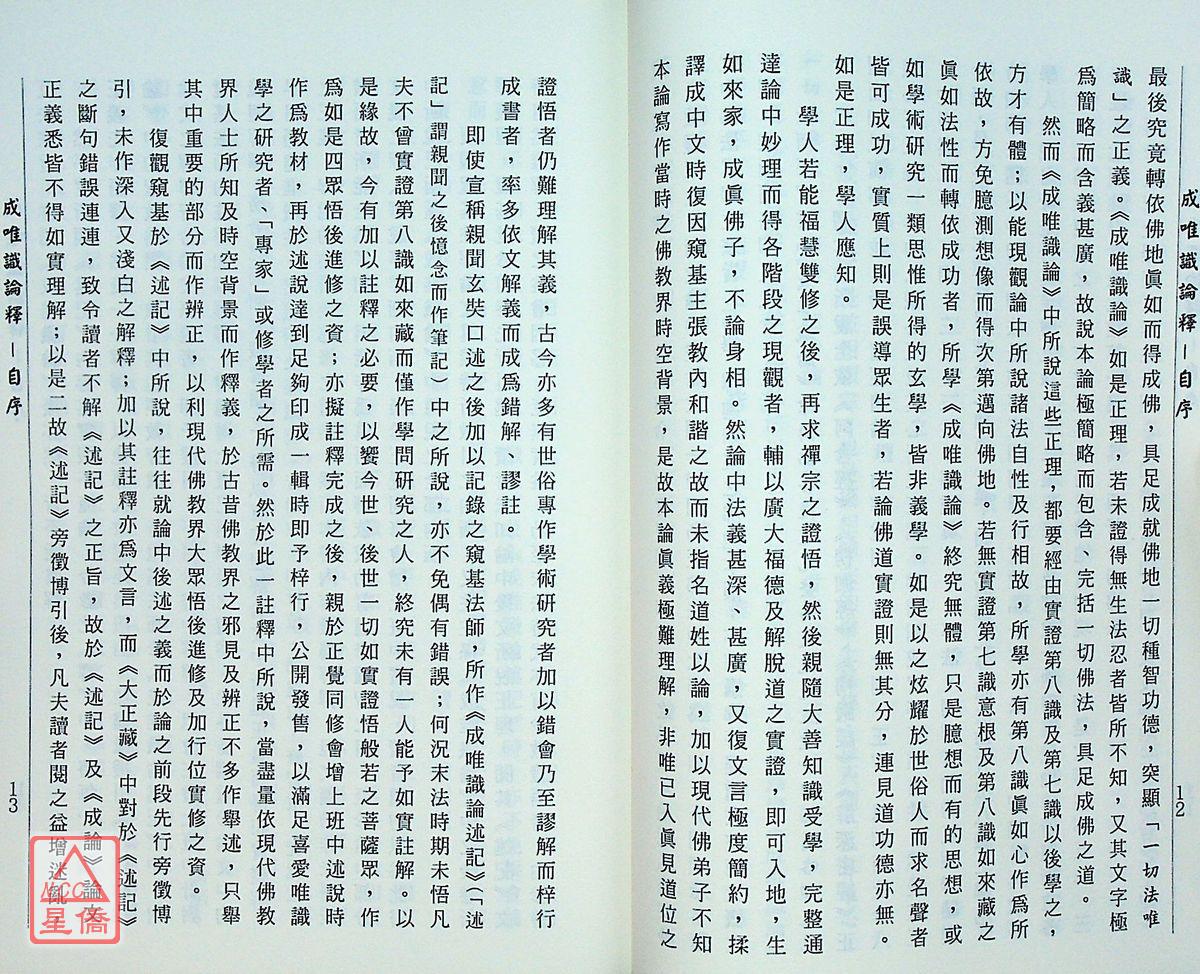 成唯識論釋—自序
12
最後究竟轉依佛地眞如而得成佛，具足成就佛地一切種智功德，突顯「一切法唯
識」之正義。《成唯識論》如是正理，若未證得無生法忍者皆所不知，又其文字極
爲簡略而含義甚廣，故說本論極簡略而包含、完括一切佛法，具足成佛之道。
然而《成唯識論》中所說這些正理，都要經由實證第八識及第七識以後學之，
方才有體；以能現觀論中所說諸法自性及行相故，所學亦有第八識眞如心作爲所
依故，方免臆測想像而得次第邁向佛地。若無實證第七識意根及第八識如來藏之
眞如法性而轉依成功者，所學《成唯識論》終究無體，只是臆想而有的思想，或
如學術研究一類思惟所得的玄學，皆非義學。如是以之炫耀於世俗人而求名聲者
皆可成功，實質上則是誤導眾生者，若論佛道實證則無其分，連見道功德亦無。
如是正理，學人應知。
學人若能福慧雙修之後，再求禪宗之證悟，然後親隨大善知識受學，完整通
達論中妙理而得各階段之現觀者，輔以廣大福德及解脫道之實證，即可入地，生
如來家，成眞佛子，不論身相。然論中法義甚深、甚廣，又復文言極度簡約，揉
譯成中文時復因窺基主張教內和諧之故而未指名道姓以論，加以現代佛弟子不知
本論寫作當時之佛教界時空背景，是故本論眞義極難理解，非唯已入眞見道位之
證悟者仍難理解其義，古今亦多有世俗專作學術研究者加以錯會乃至謬解而梓行
成書者，率多依文解義而成爲錯解、謬註。
即使宣稱親聞玄奘口述之後加以記錄之窺基法師，所作《成唯識論述記》（「述
記」謂親聞之後憶念而作筆記）中之所說，亦不免偶有錯誤；何況末法時期未悟凡
夫不曾實證第八識如來藏而僅作學問研究之人，終究未有一人能予如實註解。以
是緣故，今有加以註釋之必要，以饗今世、後世一切如實證悟般若之菩薩眾，作
爲如是四眾悟後進修之資；亦擬註釋完成之後，親於正覺同修會增上班中述說時
作爲教材，再於述說達到足夠印成一輯時即予梓行，公開發售，以滿足喜愛唯識
學之研究者、「專家」或修學者之所需。然於此一註釋中所說，當盡量依現代佛教
界人士所知及時空背景而作釋義，於古昔佛教界之邪見及辨正不多作舉述，只舉
其中重要的部分而作辨正，以利現代佛教界大眾悟後進修及加行位實修之資。
復觀窺基於《述記》中所說，往往就論中後述之義而於論之前段先行旁徵博
引，未作深入又淺白之解釋；加以其註釋亦爲文言，而《大正藏》中對於《述記》
之斷句錯誤連連，致令讀者不解《述記》之正旨，故於《述記》及《成論》論文
正義悉皆不得如實理解；以是二故《述記》旁徵博引後，凡夫讀者閱之益增迷亂，
成唯識論釋—自序
13
MCC
星僑